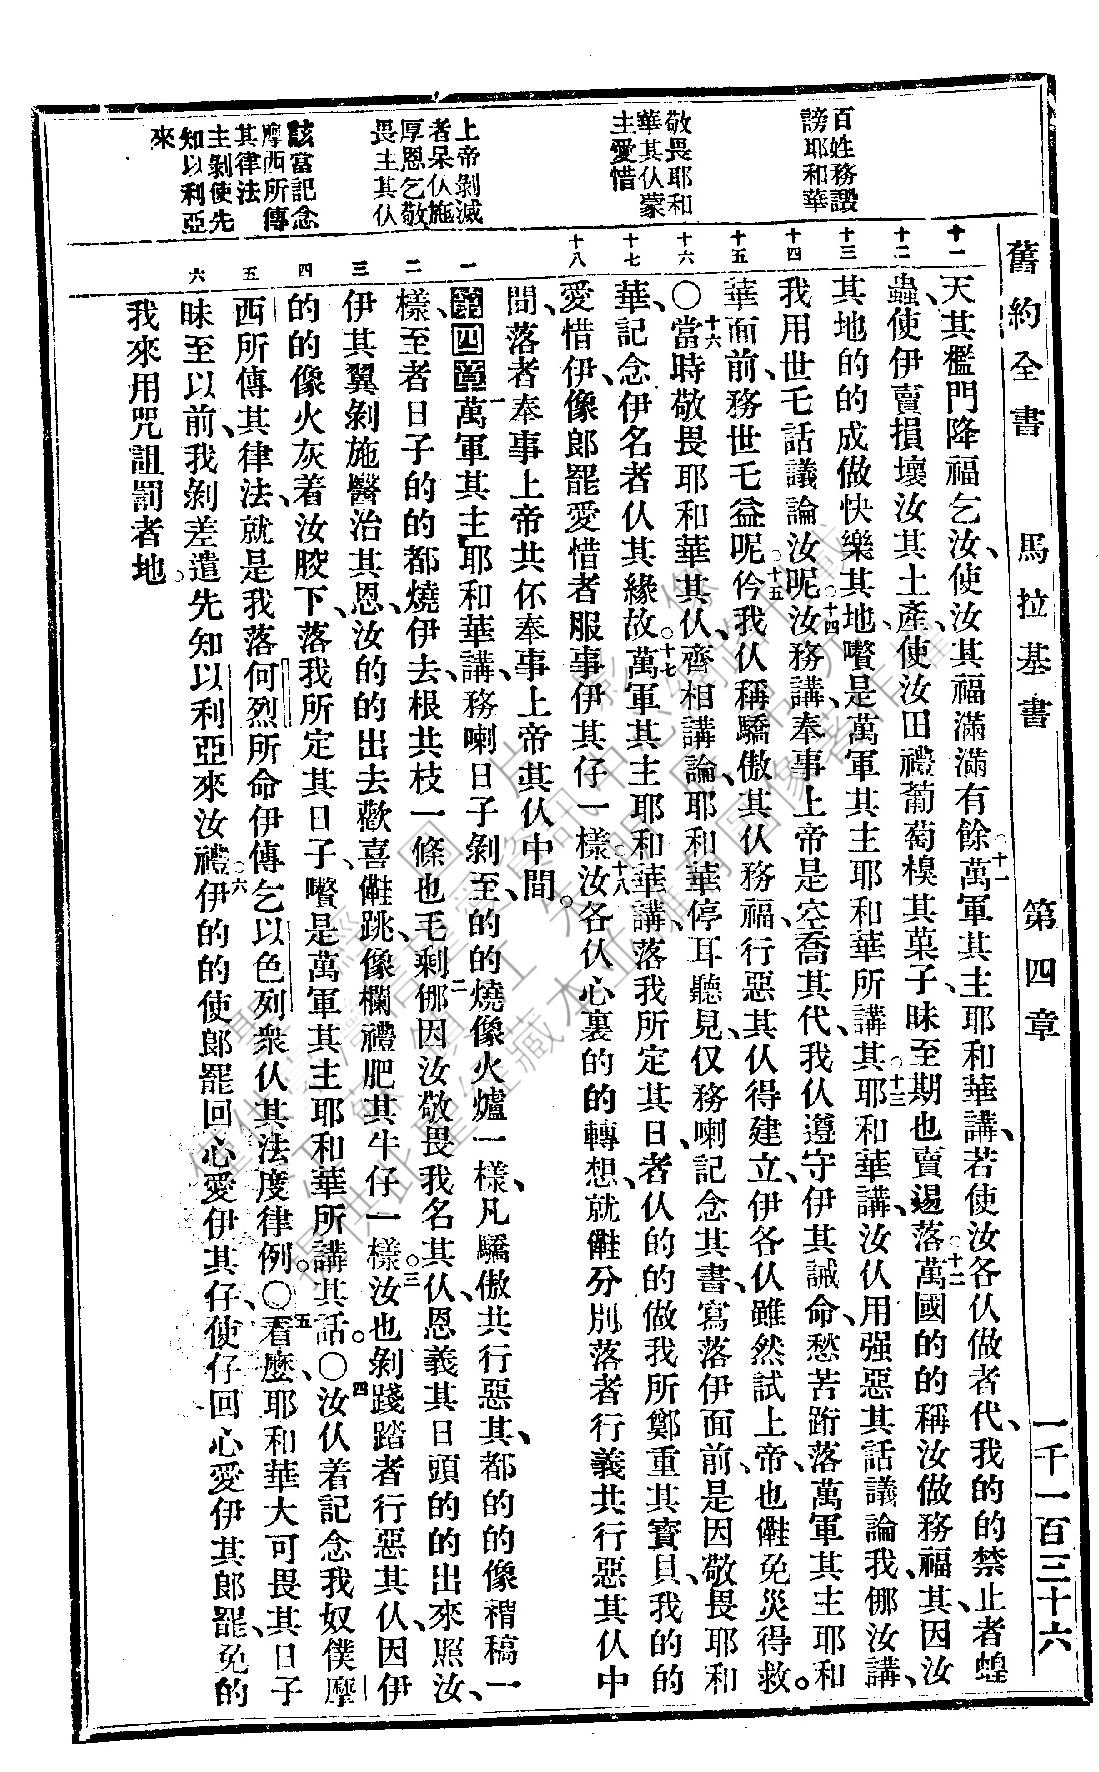 舊約全書 馬拉基書 第四章 一千一百三十六
百姓務譭
謗耶和華
敬畏耶和
華其仈蒙
主愛惜
上帝剝滅
者呆仈施
厚恩乞敬
畏主其仈
該當記念
摩西所傳
其律法
主剝使先
知以利亞
來
十一 十二 十三 十四 十五 十六 十七 十八 一 二 三 四 五 六
天其檻門降福乞汝、使汝其福滿滿有餘○十一萬軍其主耶和華講、若使汝各仈做者代、我的的禁止者蝗
蟲、使伊賣損壞汝其土產、使汝田禮葡萄樑其菓子、昧至期也賣遏落○十二萬國的的稱汝做務福其、因汝
其地的的成做快樂其地、嚽是萬軍其主耶和華所講其○十三耶和華講、汝仈用强惡其話議論我、㑚汝講、
我用世乇話議論汝呢○十四汝務講、奉事上帝是空喬其代、我仈遵守伊其誡命、愁苦跡落萬軍其主耶和
華面前、務世乇益呢○十五仱我仈稱驕傲其仈務福、行惡其仈得建立、伊各仈雖然試上帝、也㑲免災得救。
○十六當時敬畏耶和華其仈、齊相講論、耶和華停耳聽見、仅務喇記念其書、寫落伊面前、是因敬畏耶和
華、記念伊名者仈其緣故○十七萬軍其主耶和華講、落我所定其日、者仈的的做我所鄭重其寶貝、我的的
愛惜伊、像郎罷愛惜者服事伊其仔一樣○十八汝各仈心裏的的轉想、就㑲分別落者行義共行惡其仈中
間、落者奉事上帝共伓奉事上帝其仈中間。
第四章 一萬軍其主耶和華講、務喇日子剝至的的燒像火爐一樣、凡驕傲共行惡其、都的的像稭稿一
樣、至者日子的的都燒伊去、根共枝一條也毛剩二㑚因汝敬畏我名其仈、恩義其日頭的的出來照汝、
伊其翼剝施醫治其恩、汝的的出去歡喜㑲跳、像欄禮肥其牛仔一樣○三汝也剝踐踏者行惡其仈、因伊
的的像火灰着汝骹下、落我所定其日子、嚽是萬軍其主耶和華所講其話。○四汝仈着記念我奴僕摩
西所傳其律法、就是我落何烈所命伊傳乞以色列衆仈其法度律例。○五看麽、耶和華大可畏其日子
昧至以前、我剝差遣先知以利亞來汝禮○六伊的的使郎罷回心愛伊其仔、使仔回心愛伊其郎罷、免的
我來用咒詛罰者地